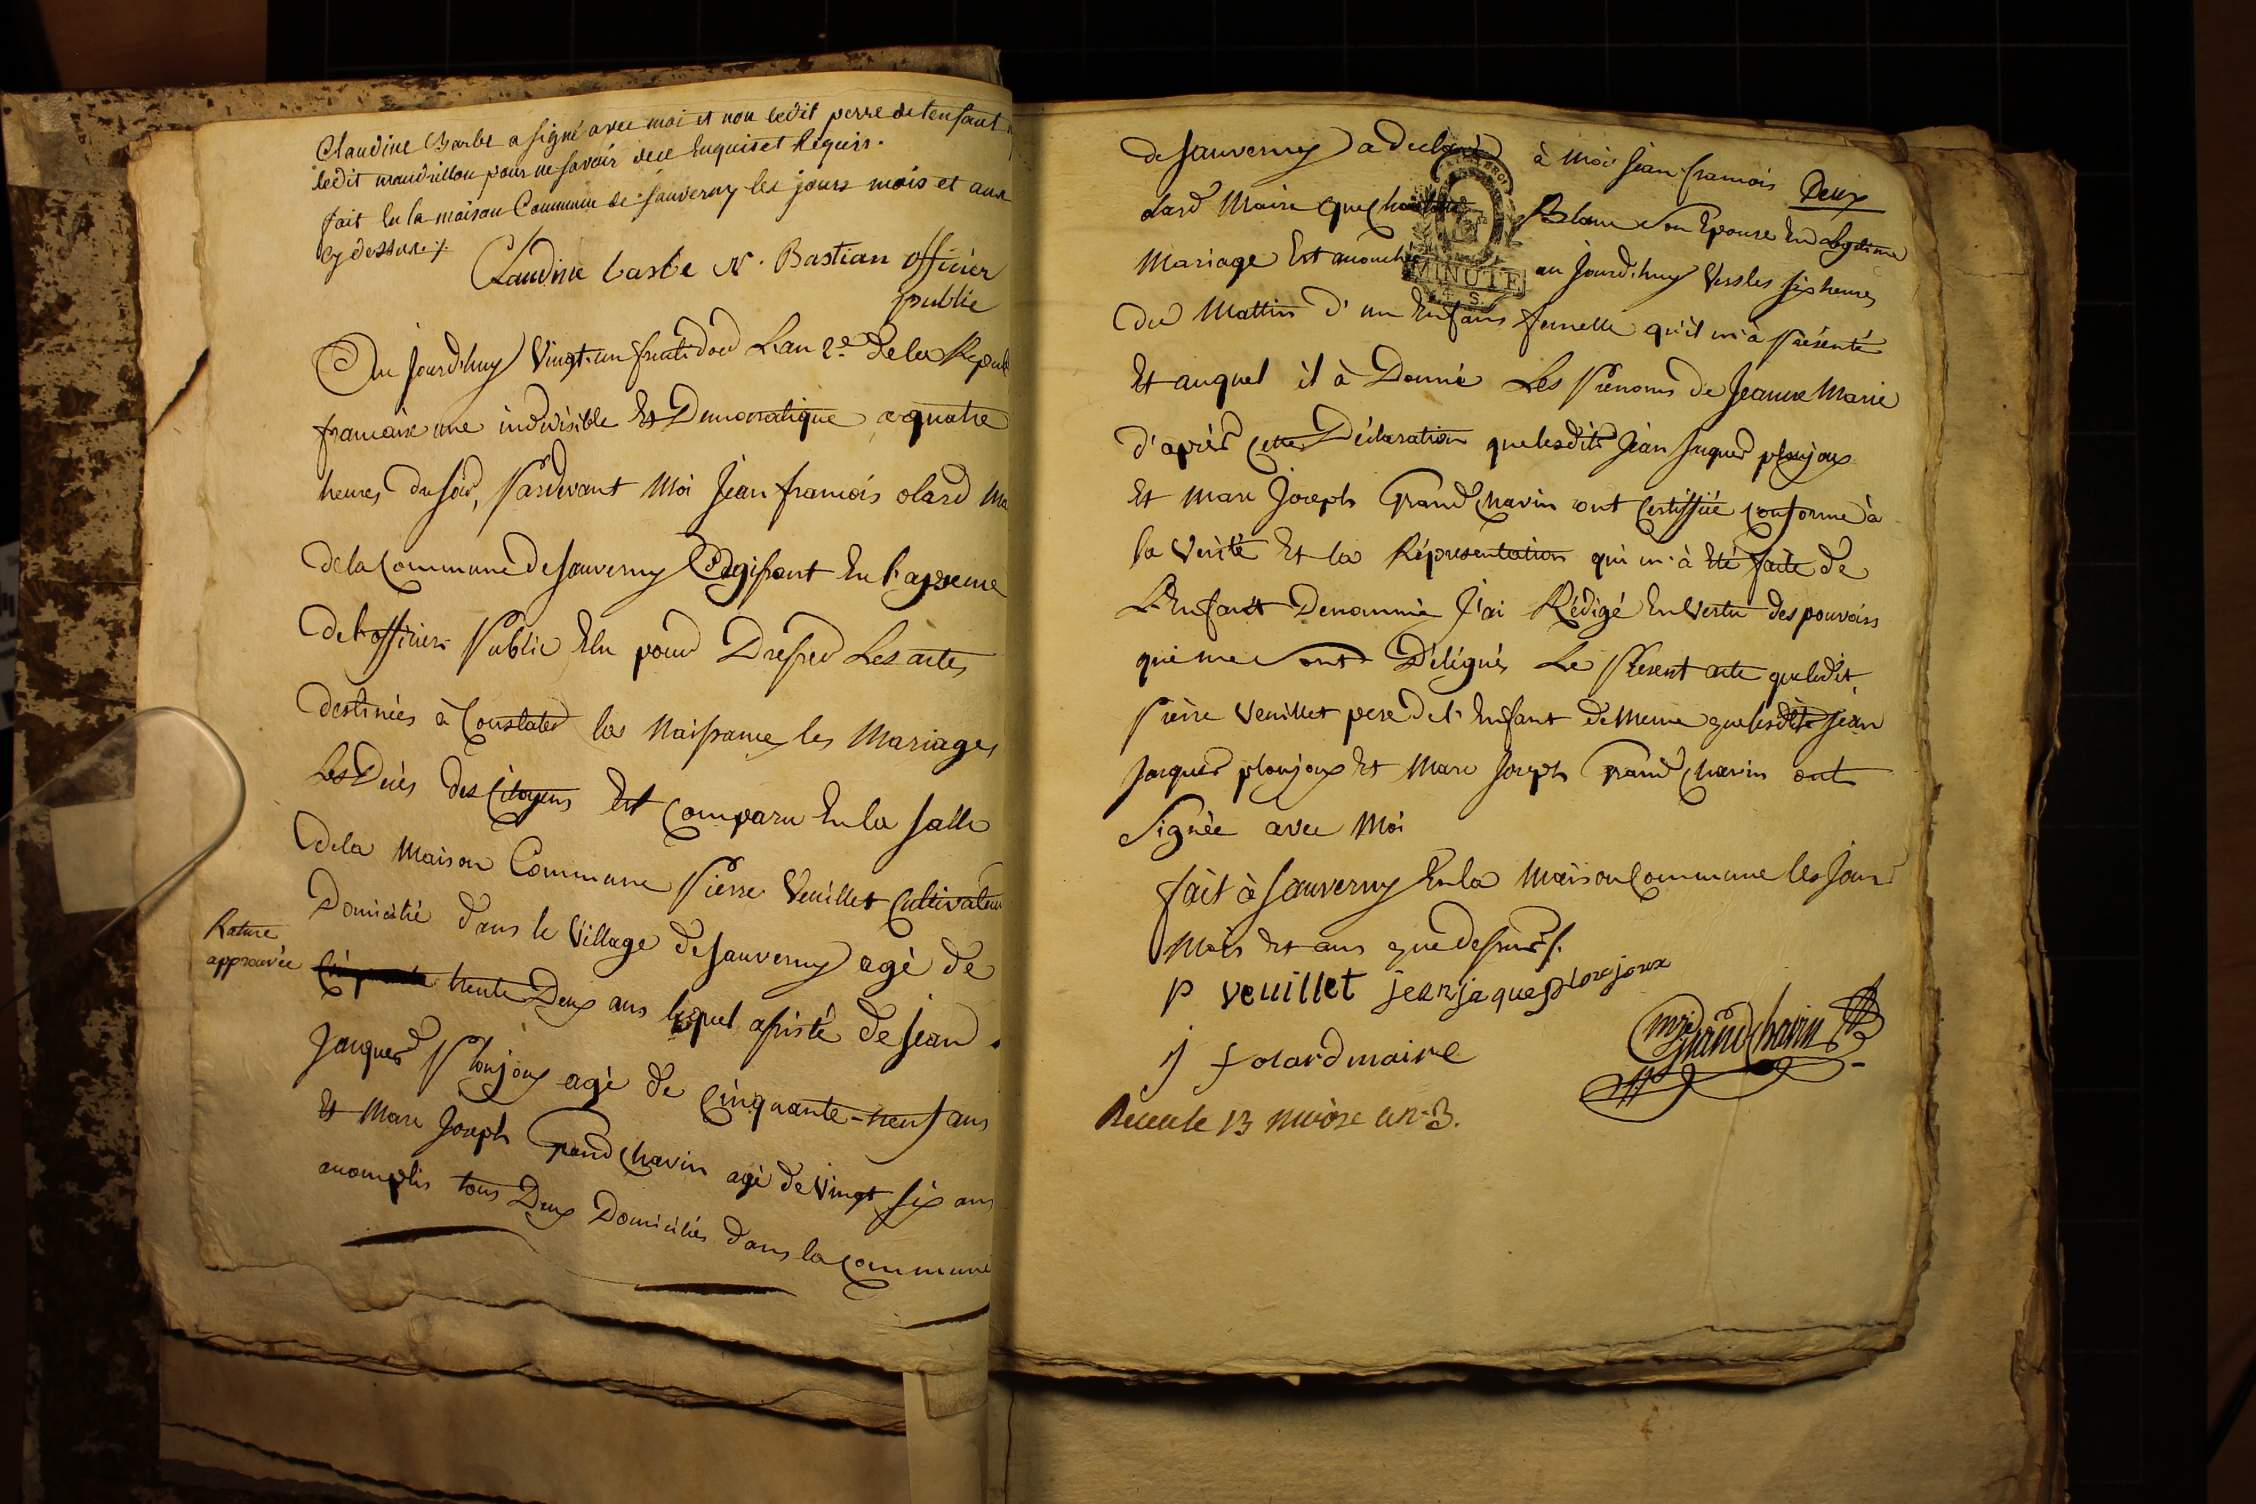 Claudine Barbe a signé avec moi et non ledit perre de l'enfant
ledit mandrillon pour ne savoir de ce Enquis et Requis.
fait En la maison Commune de sauverny les jours mois et an
Cy dessus./.
Claudine barbe N. Bastian officier
public
Au jourd'huy Vingt-un fructidor L'an 2e. de la Repub
francaise une indivisible Et Democratique a quatre
heures du soir, Pardevant Moi Jean francois olard Ma
de la Commune de sauverny agissant En l'absence
de l'officier Public Elu pour Dresser Les actes
destinées à Constater les Naissances les Mariages
Les Décès des Citoyens Est Comparu En la salle
de la Maison Commune Pierre Veuillet Cultivateur
Domicilié dans le Village de sauverny agé de
Rature
approuvée
trente Deux ans lequel assisté de Jean
Jacques Ploujoux agé de Cinquante-neuf ans
Et Marc Joseph Grand Chavin agé de Vingt six ans
accomplis tous Deux Domiciliés dans la Commune
de sauverny a declaré à Moi Jean francois
Deux
olard Maire que Blanc son Epouse En legitime
Mariage Est accouchée au Jourd'huy Vers les six heures
du Mattin d'un Enfans femelle qu'il m'à Présenté
Et auquel il à Donné Les Prenoms de Jeanne Marie
d'après Cette Déclaration que lesdits Jean Jaques ploujoux
Et Marc Joseph Grand Chavin ont Certiffiée Conforme à
la Verité Et la Réprésentation qui m'à Eté faite de
L'Enfant Denommé J'ai Rédigé En Vertu des pouvoirs
qui me sont Délégués Le Present acte que ledit
Pierre Veuillet pere de l'Enfant de Meme que lesdits Jean
Jacques ploujoux Et Marc Joseph Grand Chavin ont
Signée avec Moi
fait à Sauverny En la Maison Commune les Jour
Mois Et ans que dessus/.
P veuillet jean jaques plou joux
j f olard maire
mj Grand Chavin
MINUTE
4 S.
Receu le 13 nivôse an 3.